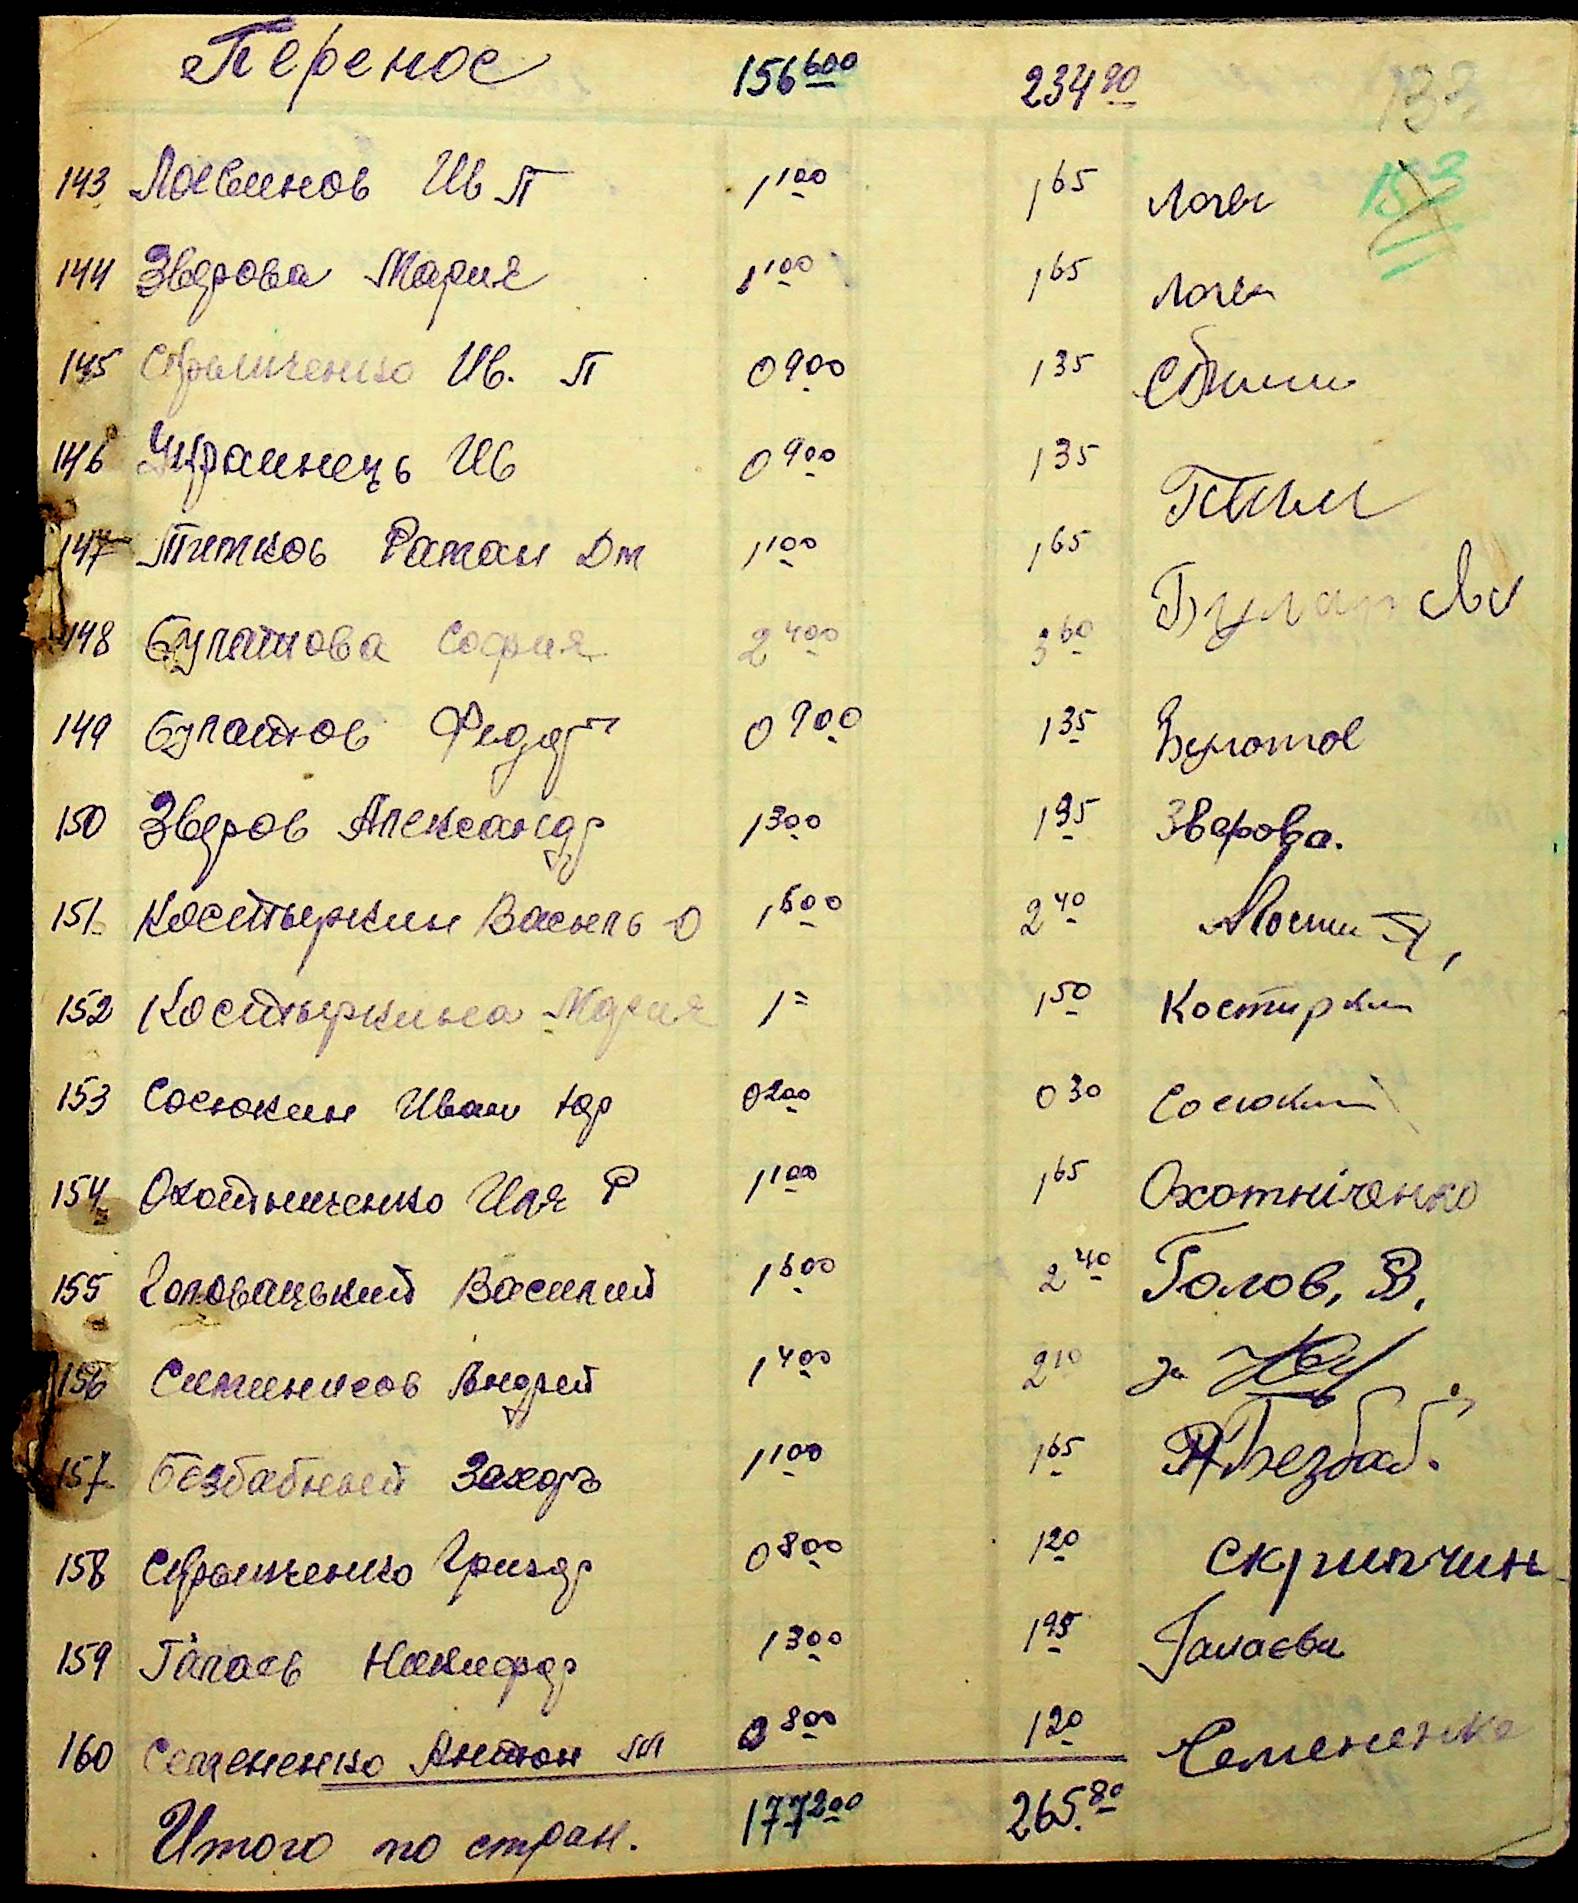 Перенос 156 600 234 90 133
153
143 Логвинов Ив П 1 100 1 65 Логвi
144 Зверова Мария 1 100 1 65 Логвi
145 Скрипченко Ив. П 0 900 1 35
146 Украинець Ив 0 900 1 35
147 Титков Роман Дм 1 100 1 65
148 Булатова София 2 400 3 60
149 Булатов Федор 0 900 1 35 Булатов
150 Зверов Александр 1 300 1 95 Зверова.
151 Костыркин Василь О 1 600 2 40
152 Костыркина Мария 1 = 1 50 Костиркин
153 Сосюкин Иван 0 200 0 30 Сосюкин
154 Охотниченко Иля Р 1 100 1 65 Охотнiченко
155 Головицький Василий 1 600 2 40 Голов, В.
156 Андрей 1 400 2 10 за
157 Безбабный Захар 1 100 1 65 Безбаб.
158 Скрипченко Григор 0 800 1 20 Скрипчин
159 Галаев Никифор 1 300 1 95 Галаєва
160 Семененко Антон М 0 800 1 20 Семененко
Итого по стран. 177 200 265.80